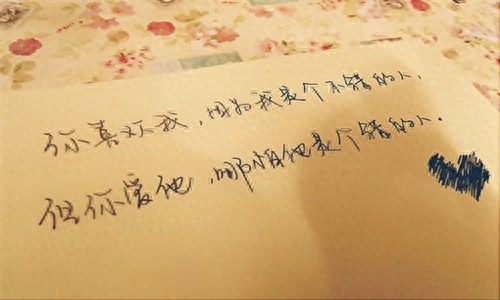 你喜欢我，因为我是个不错的人，
但你爱他，哪怕他是个错的人．